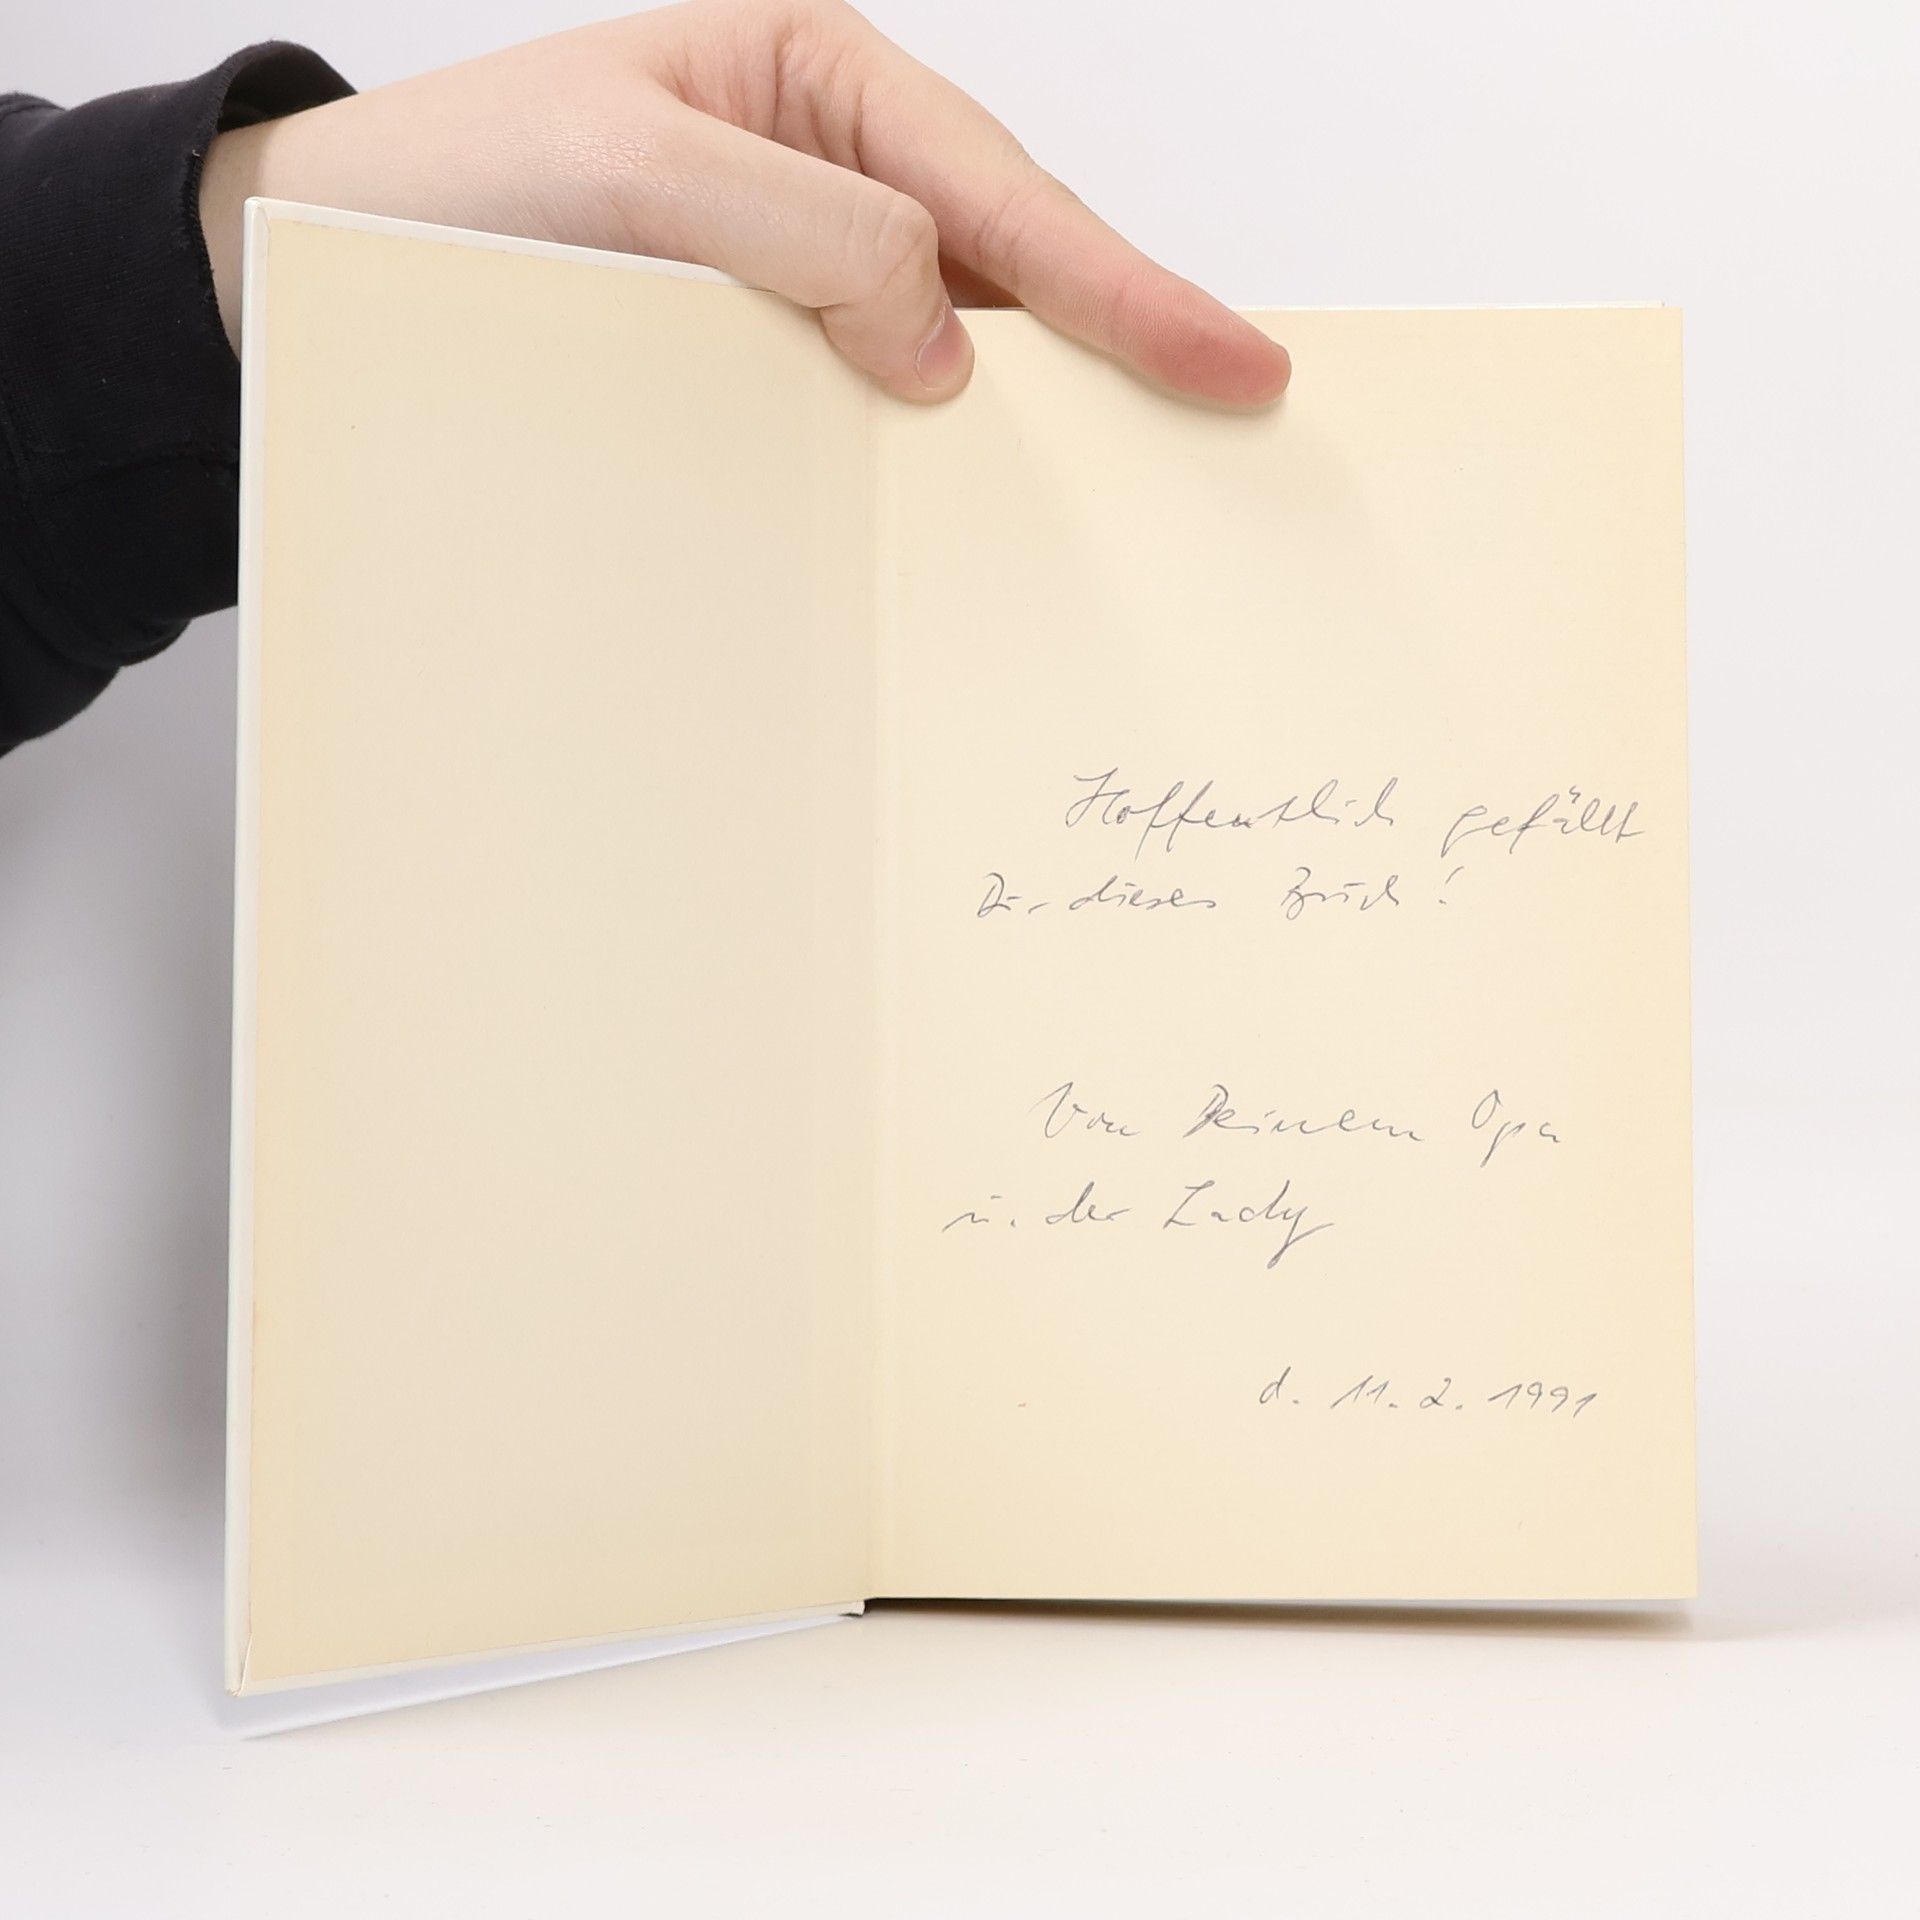 Hoffentlich gefällt
Dir dieses Buch!
Von Deinem Opa
u. der Lady
d. 11.2.1991